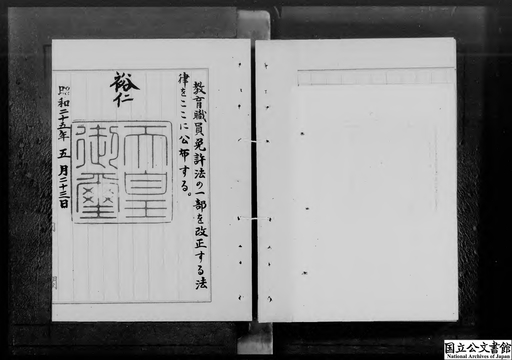 教育職員免許法の一部を改正する法
律をここに公布する。
裕仁
天皇
御璽
昭和二十五年五月二十三日
国立公文書館
National Archives of Japan